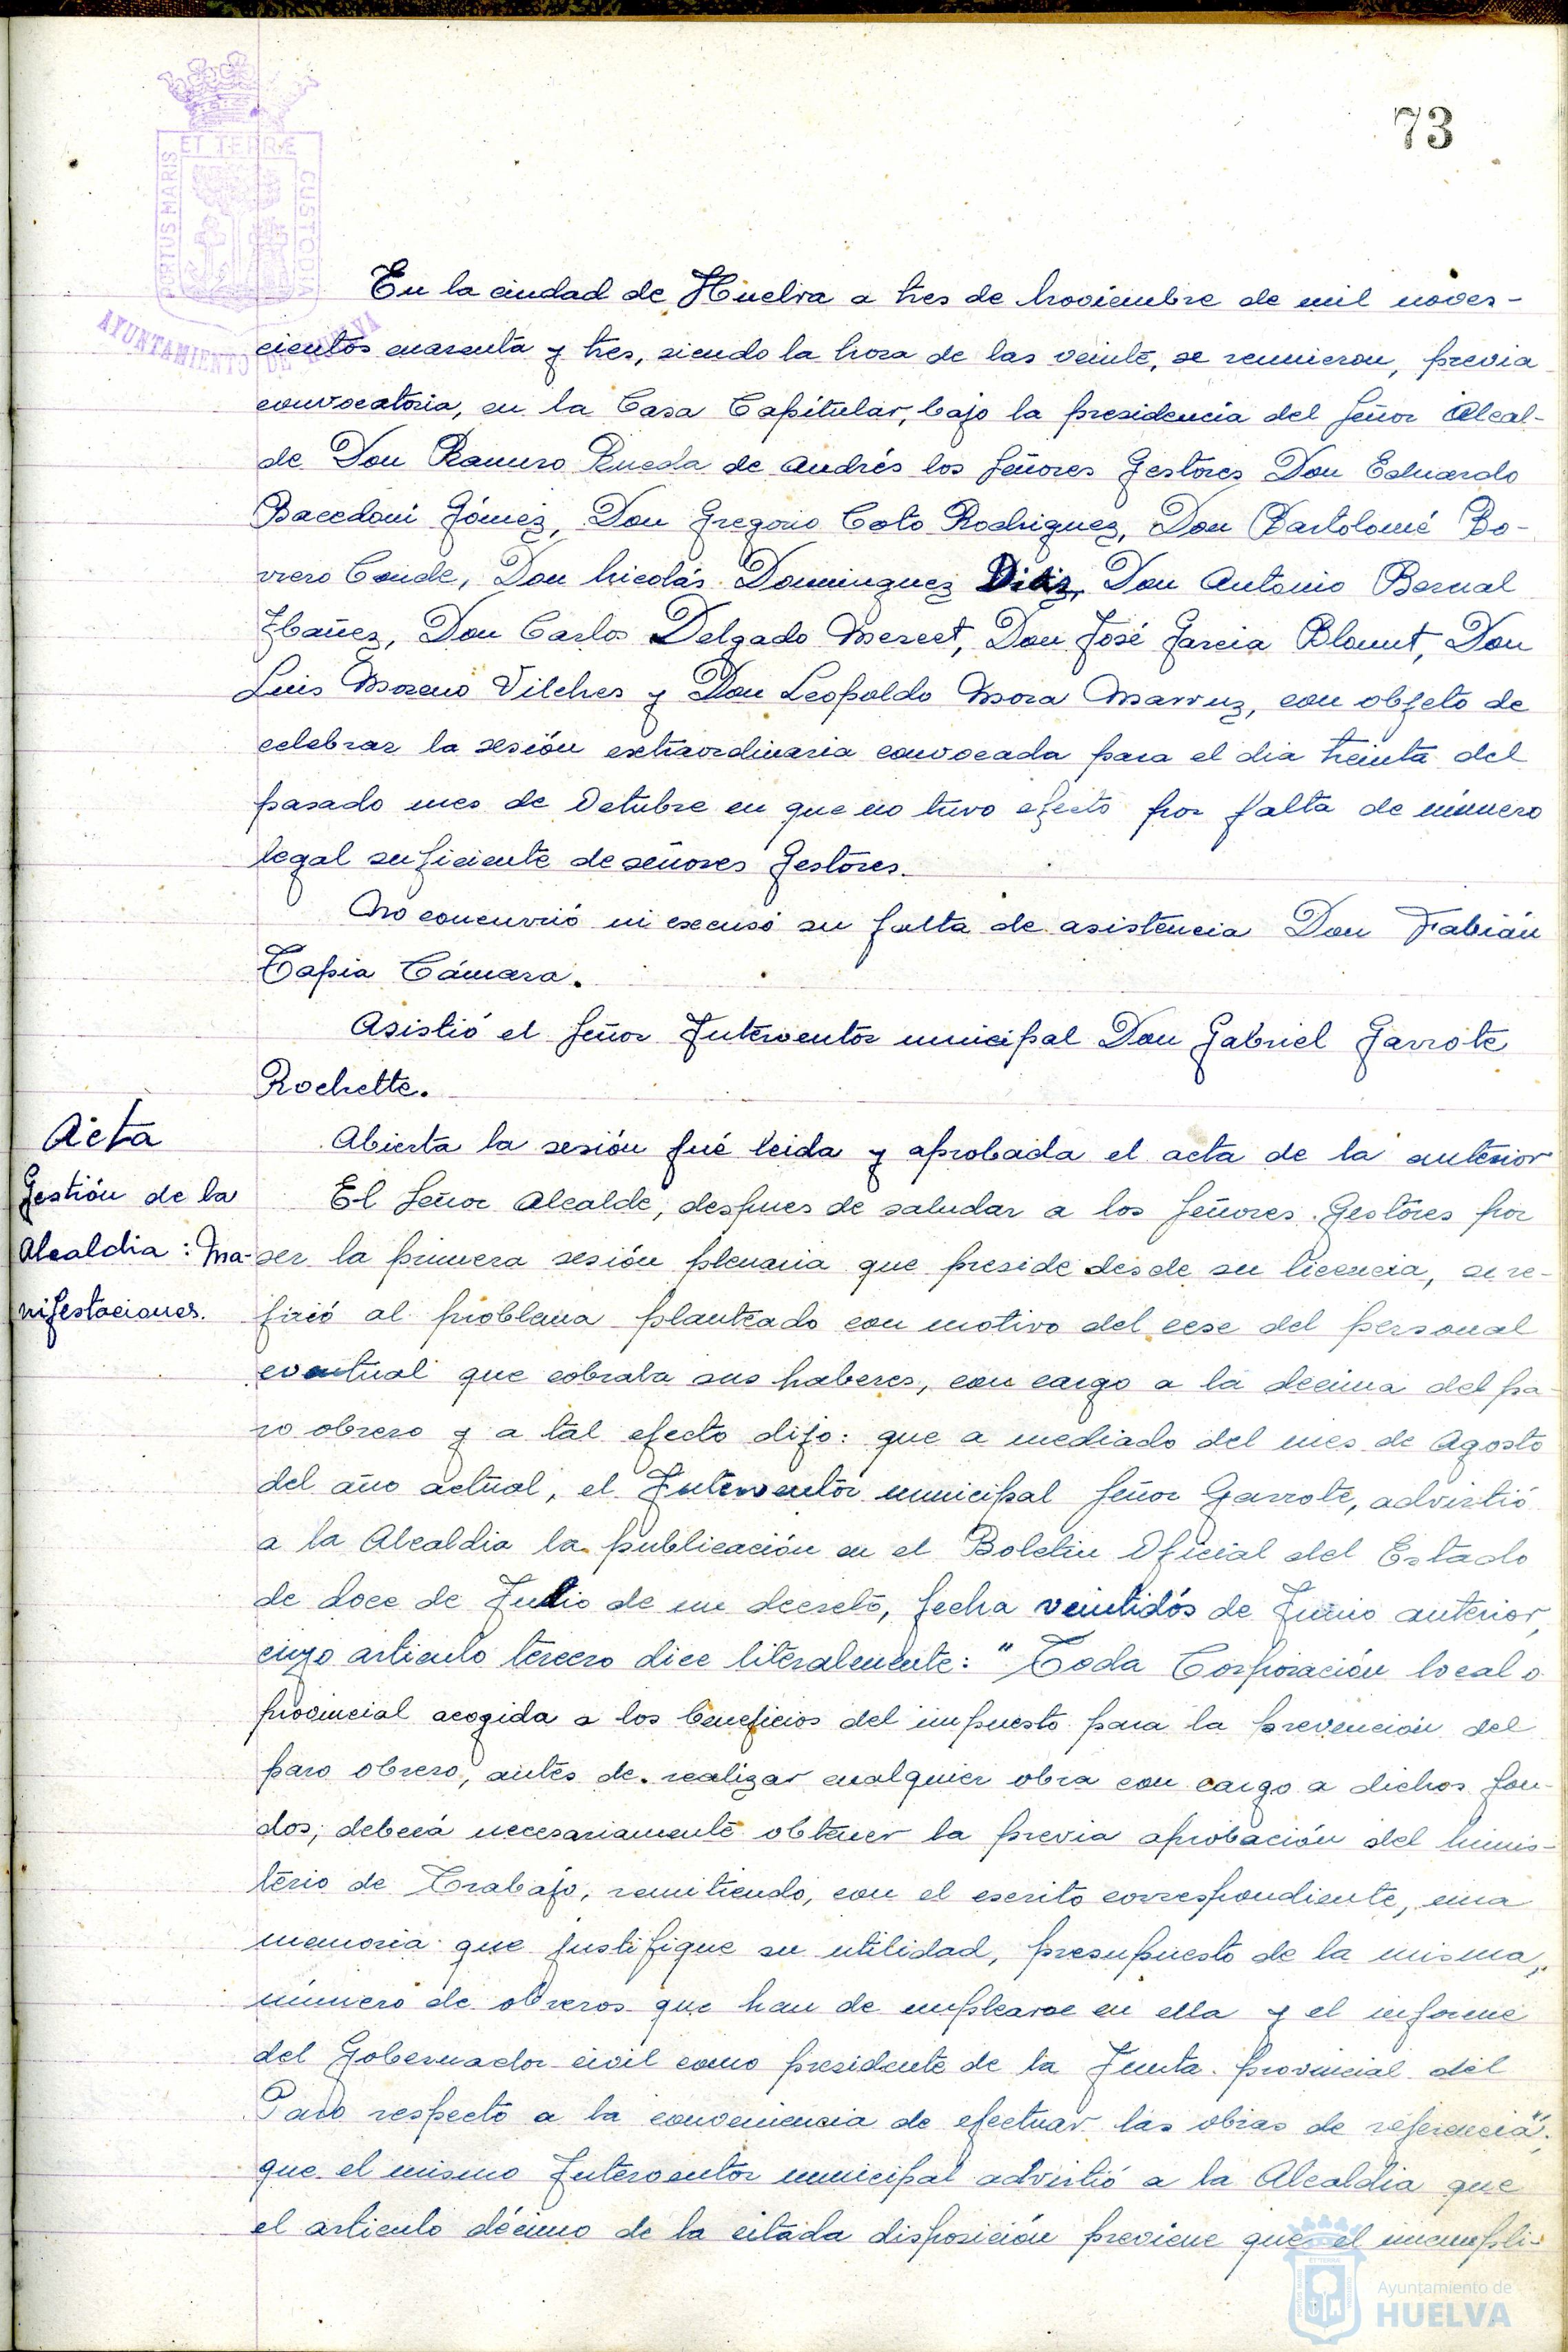 73
PORTUS MARIS ET TERRÆ CUSTODIA
AYUNTAMIENTO DE HUELVA
En la ciudad de Huelva a tres de Noviembre de mil noves-
cientos cuarenta y tres, siendo la hora de las veinte, se reunieron, previa
convocatoria, en la Casa Capitular, bajo la presidencia del Señor Alcal-
de Don Ramiro Rueda de Andrés los Señores Gestores Don Eduardo
Bacedoni Gómez, Don Gregorio Coto Rodriguez, Don Bartolomé Bo-
rrero Conde, Don Nicolás Dominguez Diaz, Don Antonio Bernal
Ibañez, Don Carlos Delgado Mercet, Don José Garcia Blount, Don
Luis Moreno Vilches y Don Leopoldo Mora Marruz, con objeto de
celebrar la sesión extraordinaria convocada para el dia treinta del
pasado mes de Octubre en que no tuvo efecto por falta de número
legal suficiente de señores Gestores.
No concurrió ni excusó su falta de asistencia Don Fabián
Tapia Cámara.
Asistió el Señor Interventor municipal Don Gabriel Garrote
Rochette.
Acta
Abierta la sesión fué leida y aprobada el acta de la anterior
Gestión de la
Alcaldia: Ma-
nifestaciones.
El Señor Alcalde, despues de saludar a los Señores Gestores por
ser la primera sesión plenaria que preside desde su licencia, se re-
firió al problema planteado con motivo del cese del personal
eventual que cobraba sus haberes, con cargo a la decima del pa-
ro obrero y a tal efecto dijo: que a mediado del mes de Agosto
del año actual, el Interventor municipal Señor Garrote, advirtió
a la Alcaldia la publicación en el Boletin Oficial del Estado
de doce de Julio de un decreto, fecha veintidós de Junio anterior,
cuyo articulo tercero dice literalmente: "Toda Corporación local o
provincial acogida a los beneficios del impuesto para la prevención del
paro obrero, antes de realizar cualquier obra con cargo a dichos fon-
dos, deberá necesariamente obtener la previa aprobación del Minis-
terio de Trabajo, remitiendo, con el escrito correspondiente, una
memoria que justifique su utilidad, presupuesto de la misma,
número de obreros que han de emplearse en ella y el informe
del Gobernador civil como presidente de la Junta provincial del
Paro respecto a la conveniencia de efectuar las obras de referencia";
que el mismo Interventor municipal advirtió a la Alcaldia que
el articulo décimo de la citada disposición previene que el incumpli-
Ayuntamiento de
HUELVA